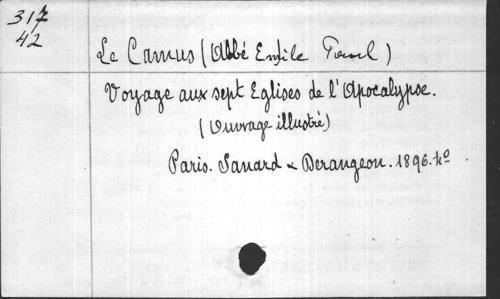 317
42
Le Camus (Abbé Emile Paul)
Voyage aux sept Eglises de l'Apocalypse.
(Ouvrage illustré)
Paris. Sanard & Derangeon. 1896. 4º